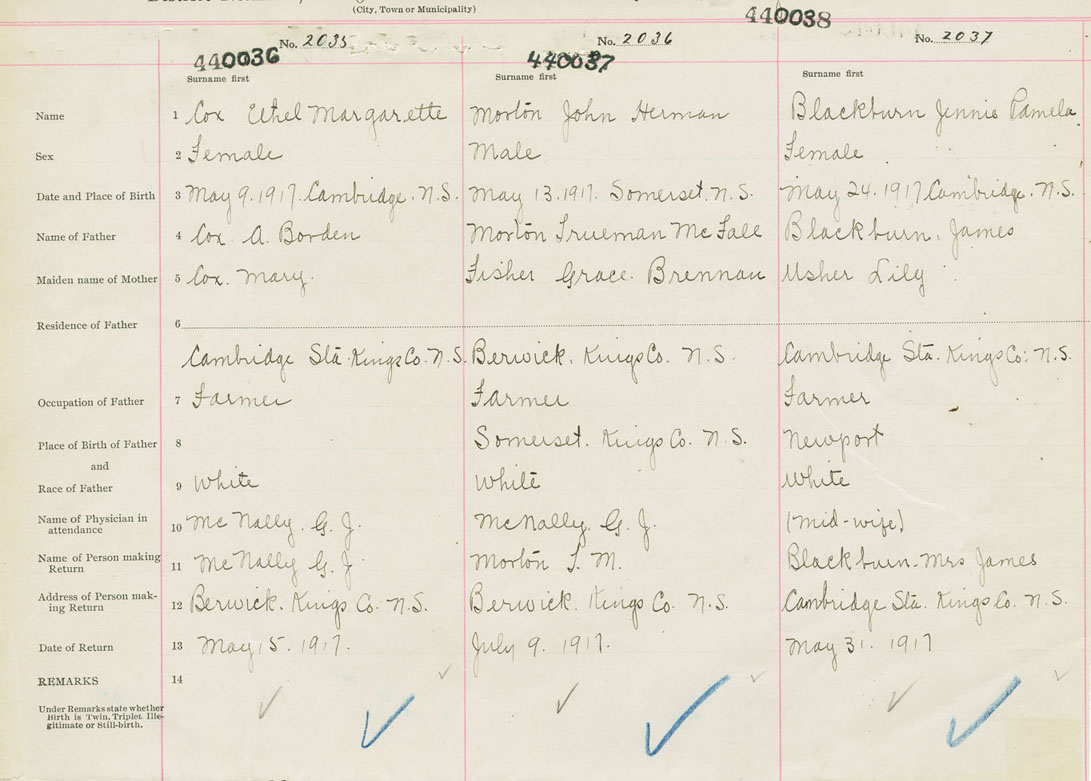 (City, Town or Municipality)
440038
No. 2035 No. 2036 No. 2037
440036 440037
Surname first Surname first Surname first
Name 1 Cox Ethel Margarette Morton John Herman Blackburn Jennie Pamela
Sex 2 Female Male Female
Date and Place of Birth 3 May 9. 1917. Cambridge. N.S. May 13. 1917. Somerset. N.S. May 24. 1917 Cambridge. N.S.
Name of Father 4 Cox A. Borden Morton Trueman McFall Blackburn. James
Maiden name of Mother 5 Cox. Mary. Fisher Grace. Brennan Usher Lily
Residence of Father 6
Cambridge Sta. Kings Co. N.S. Berwick. Kings Co. N.S. Cambridge Sta. Kings Co. N.S.
Occupation of Father 7 Farmer Farmer Farmer
Place of Birth of Father 8 Somerset. Kings Co. N.S. Newport
and
Race of Father 9 White White White
Name of Physician in
attendance 10 McNally. G. J. McNally. G. J. (Mid-wife)
Name of Person making
Return 11 McNally G. J. Morton T. M. Blackburn. Mrs James
Address of Person mak-
ing Return 12 Berwick. Kings Co. N.S. Berwick. Kings Co. N.S. Cambridge Sta. Kings Co. N.S.
Date of Return 13 May 15. 1917. July 9. 1917. May 31. 1917
REMARKS 14
Under Remarks state whether
Birth is Twin, Triplet, Ille-
gitimate or Still-birth.